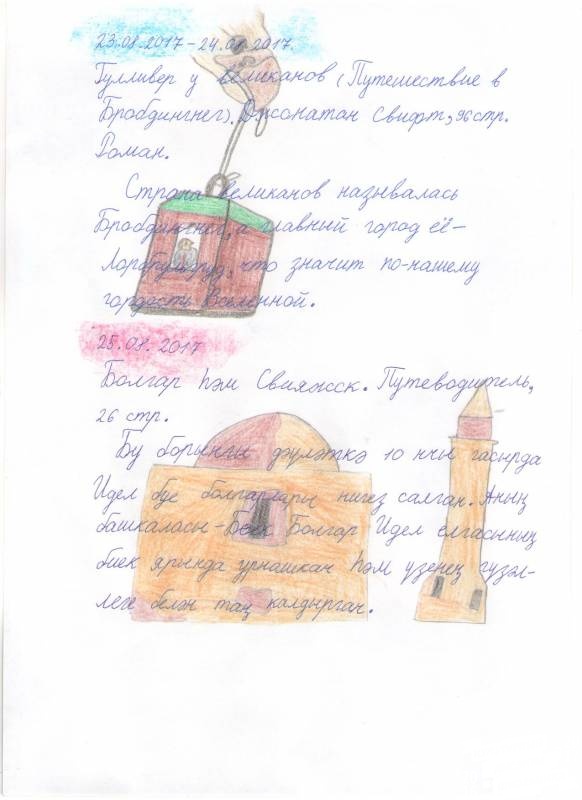 23.08.2017-24.08.2017.
Гулливер у великанов (Путешествие в
Бробдингнег). Джонатан Свифт, 96 стр.
Роман.
Страна великанов называлась
Бробдингнег, а главный город её-
Лорбрульгруд, что значит по-нашему
гордость Вселенной.
25.08.2017
Болгар һәм Свияжск. Путеводитель,
26 стр.
Бу борынгы дәүләткә 10 нчы гасырда
Идел буе болгарлары нигез салган. Аның
башкаласы-Бөек Болгар Идел елгасының
биек ярында урнашкан һәм үзенең гүзәл-
леге белән таң калдырган.